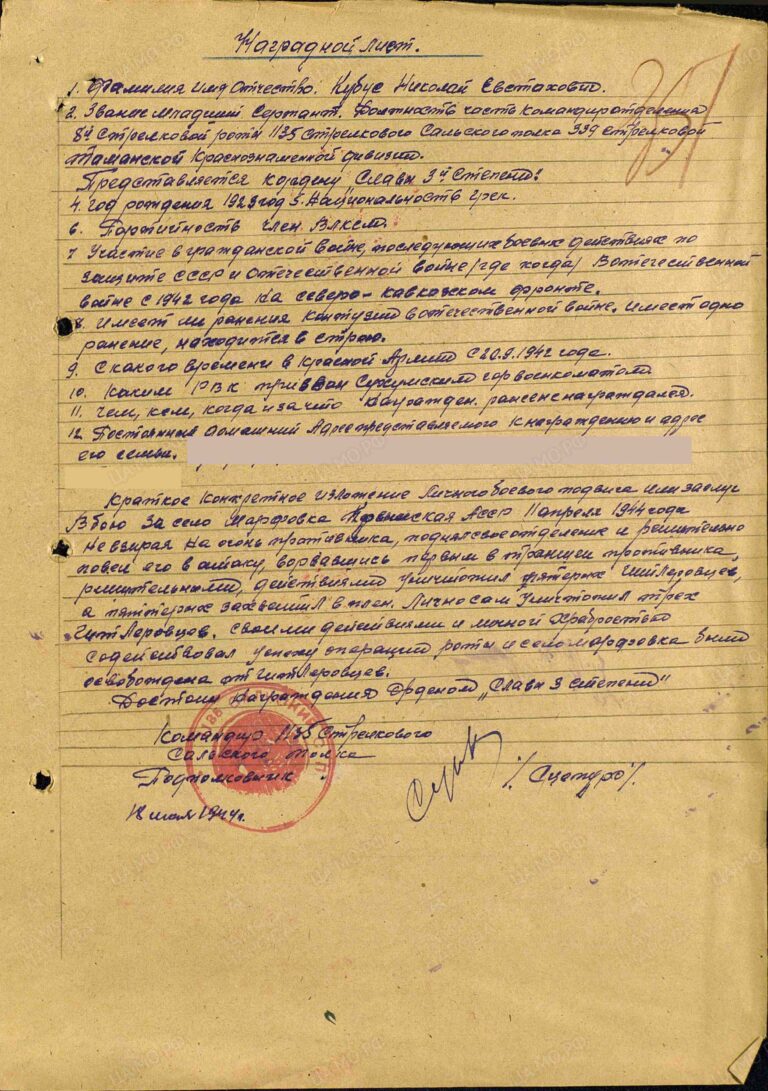 Наградной лист.
1. Фамилия имя отчество. Кубус Николай Евстахович.
2. Звание младший Сержант. Должность часть командир отделения
8й Стрелковой роты 1135 стрелкового Сальского полка 339 стрелковой
Таманской Краснознаменной дивизии.
Представляется к ордену Славы 3й степени:
4. Год рождения 1923 год 5. Национальность грек.
6. Партийность член ВЛКСМ.
7. Участие в гражданской войне, последующих боевых действиях по
защите СССР и отечественной войне /где когда/ В отечественной
войне с 1942 года на северо-кавказском фронте.
8. Имеет ли ранения контузии в отечественной войне. имеет одно
ранение, находится в строю.
9. С какого времени в Красной Армии с 20.9.1942 года.
10. Каким РВК призван Сухумским горвоенкоматом
11. Чем, кем, когда и за что награжден. ранее не награждался.
12. Постоянный домашний Адрес представляемого к награждению и адрес
его семьи.
Краткое конкретное изложение личного боевого подвига или заслуг
В бою за село Марфовка Крымская АССР 11 апреля 1944 года
Невзирая на огонь противника, поднял свое отделение и решительно
повел его в атаку, ворвавшись первым в траншеи противника,
решительными, действиями уничтожил пятерых гитлеровцев,
а пятерых захватил в плен. Лично сам уничтожил трех
гитлеровцев. своими действиями и личной храбростью
содействовал успеху операции роты и село Марфовка было
освобождена от гитлеровцев.
Достоин награждения Орденом „Славы 3 степени"
Командир 1135 Стрелкового
Сальского полка
Подполковник
/Сцепуро/.
18 мая 1944г.